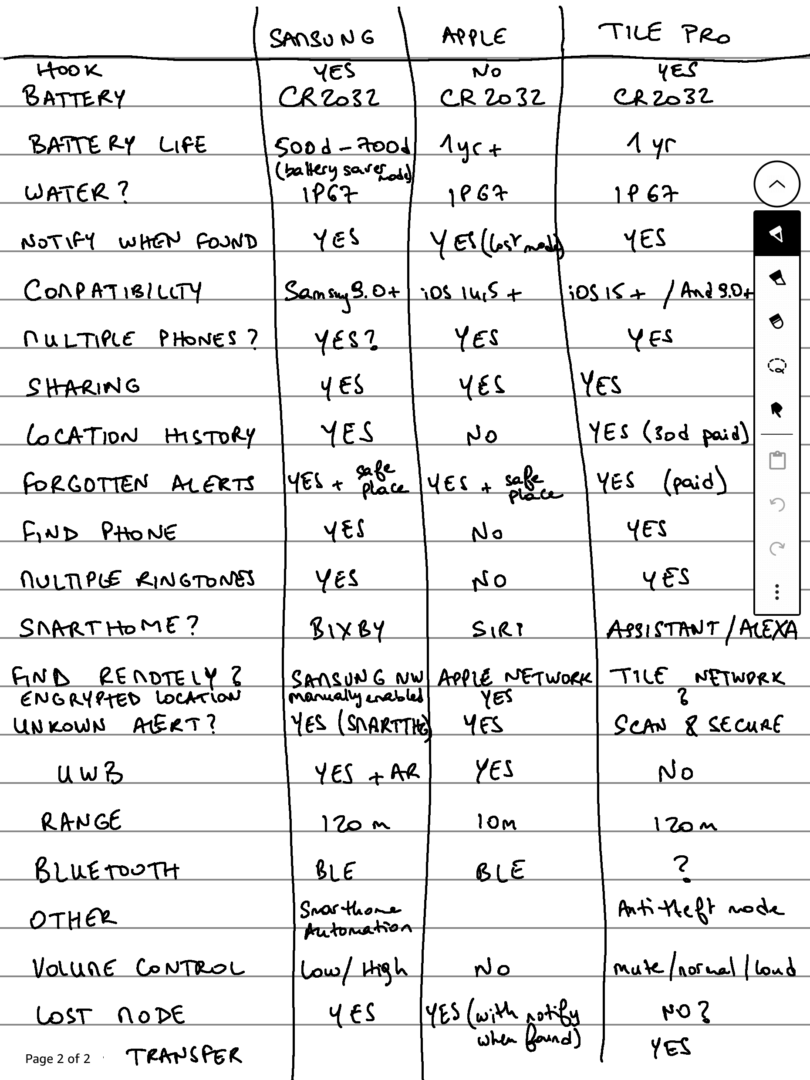 SAMSUNG APPLE TILE PRO
HOOK YES NO YES
BATTERY CR2032 CR2032 CR2032
BATTERY LIFE 500d-700d 1yr+ 1yr
(battery saver mode)
WATER? IP67 IP67 IP67
NOTIFY WHEN FOUND YES YES (lost mode) YES
COMPATIBILITY Samsung 9.0+ iOS 14,5+ iOS 15+ / And 9.0+
MULTIPLE PHONES? YES? YES YES
SHARING YES YES YES
LOCATION HISTORY YES NO YES (30d paid)
FORGOTTEN ALERTS YES + safe place YES + safe place YES (paid)
FIND PHONE YES NO YES
MULTIPLE RINGTONES YES NO YES
SMARTHOME? BIXBY SIRI ASSISTANT/ALEXA
FIND REMOTELY? SAMSUNG NW APPLE NETWORK TILE NETWORK
ENCRYPTED LOCATION manually enabled YES ?
UNKOWN ALERT? YES (SMARTTHG) YES SCAN & SECURE
UWB YES + AR YES NO
RANGE 120m 10m 120m
BLUETOOTH BLE BLE ?
OTHER Smarthome Automation Anti-theft mode
VOLUME CONTROL Low/High NO mute/normal/loud
LOST MODE YES YES (with notify when found) NO?
TRANSFER YES
Page 2 of 2